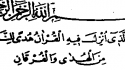 الله الرحمن الرحيم
الذي أنزل فيه القرآن هدى للناس
من الهدى والفرقان